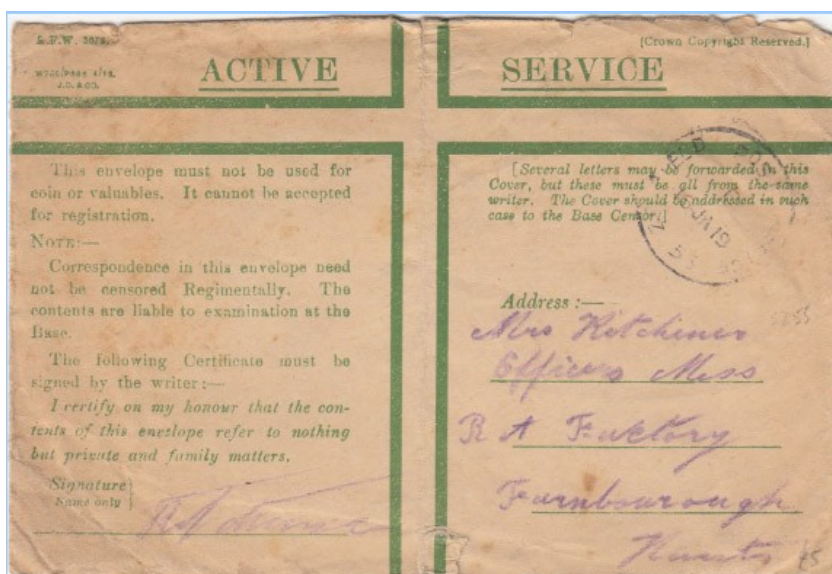 [Crown Copyright Reserved.]
J.D. & CO.
ACTIVE SERVICE
This envelope must not be used for
coin or valuables. It cannot be accepted
for registration.
NOTE:—
Correspondence in this envelope need
not be censored Regimentally. The
contents are liable to examination at the
Base.
The following Certificate must be
signed by the writer:—
I certify on my honour that the con-
tents of this envelope refer to nothing
but private and family matters.
Signature
Name only
[Several letters may be forwarded in this
Cover, but these must be all from the same
writer. The Cover should be addressed in such
case to the Base Censor.]
FIELD POST
JA 19
Address:—
Mrs Kitchener
Officers Mess
R A Factory
Farnbourough
Hants
45